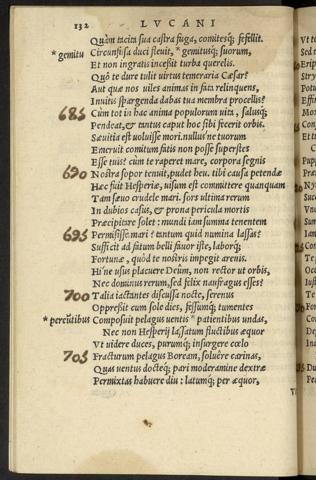 132 LVCANI
Quàm tacita sua castra fuga, comitesq; fefellit.
* gemitu Circunfusa duci fleuit, * gemitusq; suorum,
Et non ingratis incessit turba querelis.
Quò te dure tulit virtus temeraria Cæsar?
Aut quæ nos uiles animas in fata relinquens,
Inuitis spargenda dabas tua membra procellis?
685 Cùm tot in hac anima populorum uita, salusq;
Pendeat, & tantus caput hoc sibi fecerit orbis.
Sæuitia est uoluisse mori. nullus ne tuorum
Emeruit comitum fatis non posse superstes
Esse tuis? cùm te raperet mare, corpora segnis
690 Nostra sopor tenuit, pudet heu. tibi causa petendæ
Hæc fuit Hesperiæ, uisum est committere quanquam
Tam sæuo crudele mari. sors ultima rerum
In dubios casus, & prona pericula mortis
Præcipitare solet: mundi iam summa tenentem
695 Permisisse mari? tantum quid numina lassas?
Sufficit ad fatum belli fauor iste, laborq;
Fortunæ, quòd te nostris impegit arenis.
Hi'ne usus placuere Deûm, non rector ut orbis,
Nec dominus rerum, sed felix naufragus esses?
700 Talia iactantes discussa nocte, serenus
Oppressit cum sole dies, fessumq; tumentes
* percutibus Composuit pelagus uentis * patientibus undas,
Nec non Hesperij lassatum fluctibus æquor
Vt uidere duces, purumq; insurgere cœlo
705 Fracturum pelagus Boream, soluêre carinas,
Quas uentus doctæq; pari moderamine dextræ
Permixtas habuere diu: latumq; per æquor,